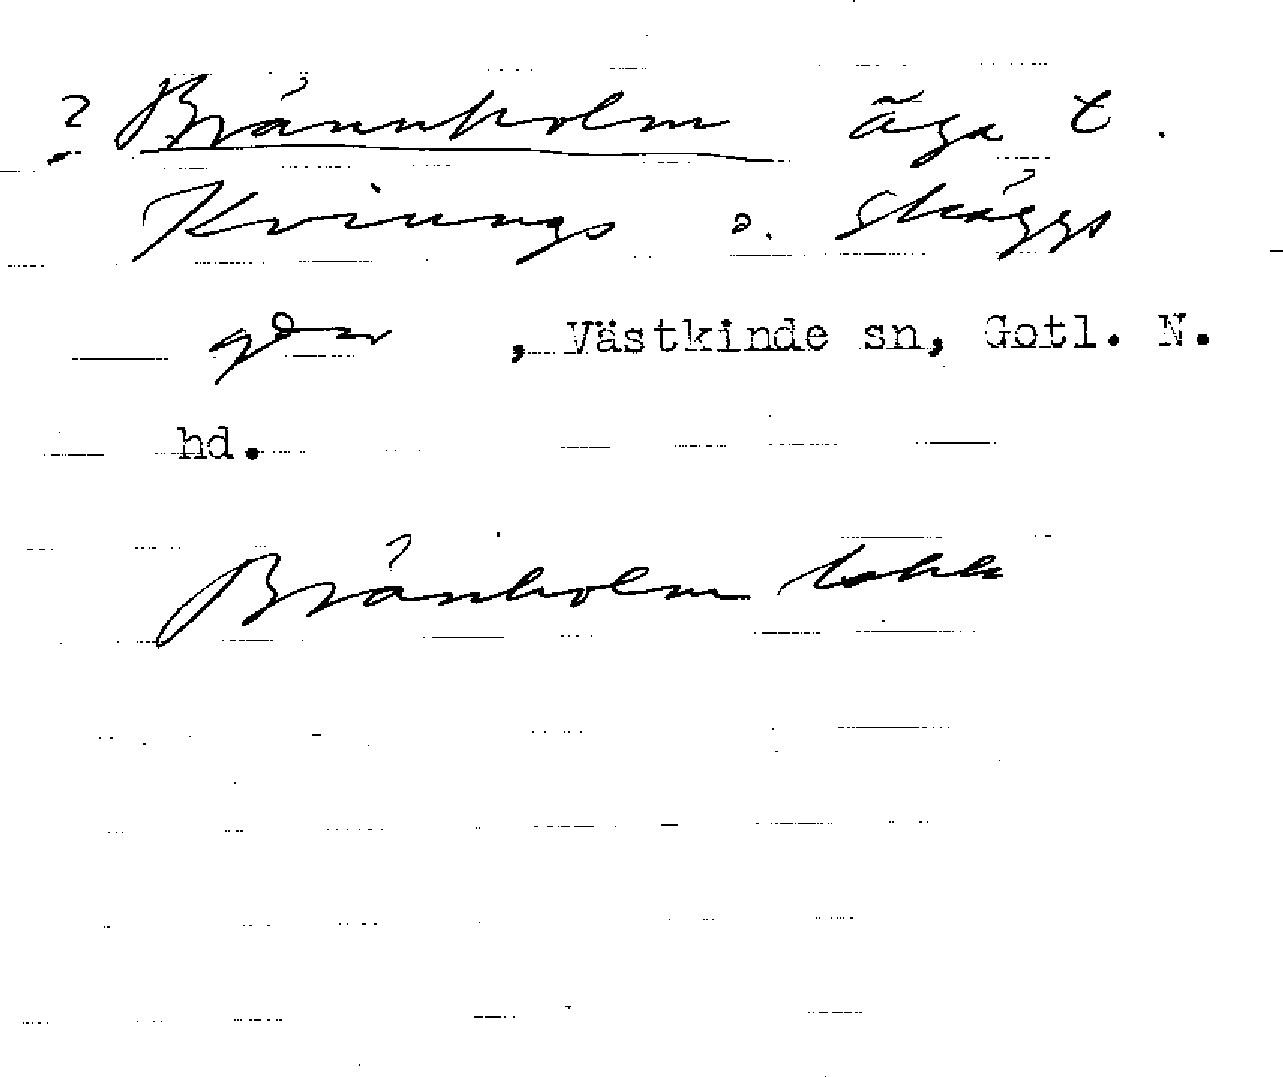 ? Brännholm äga t.
Kvinngs o. Skäggs
gdar, Västkinde sn, Gotl. N.
hd.
Bränholm